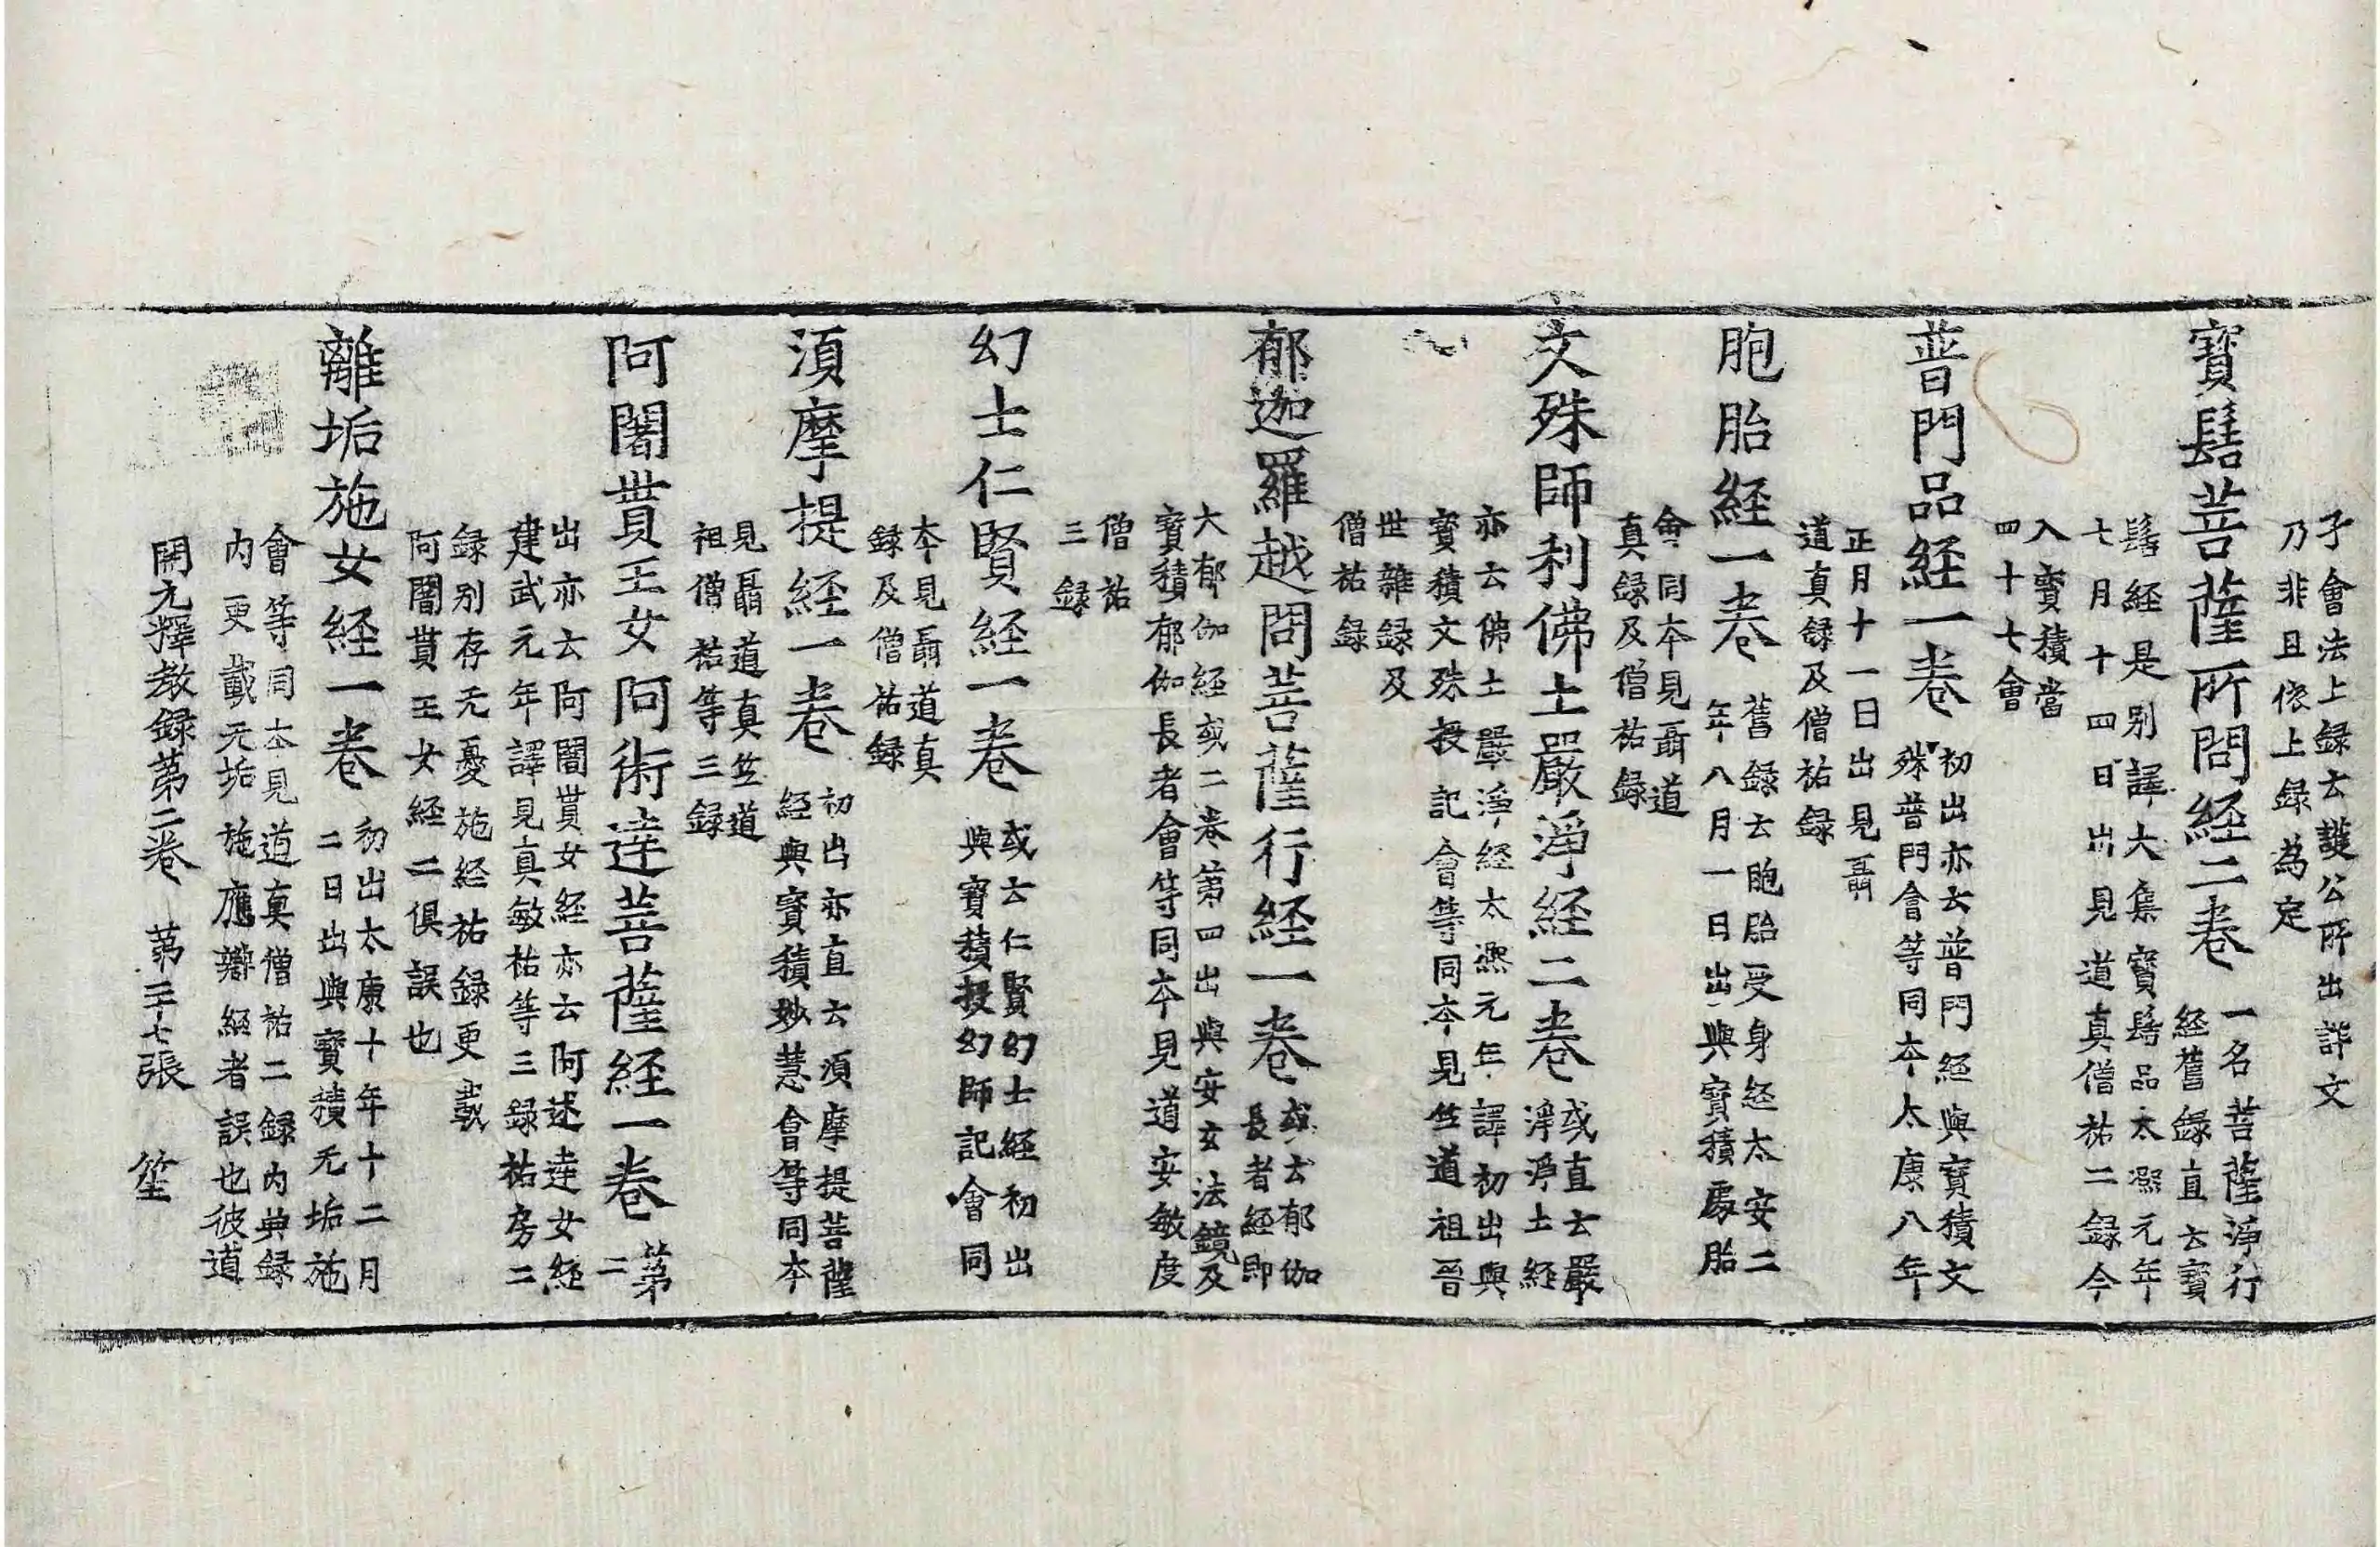 子會法上録云護公所出詳文
乃非且依上録為定
寳髻菩薩所問経二卷
一名菩薩淨行
経舊録直云寳
髻経是別譯大集寳髻品太熈元年
七月十四日出見道真僧祐二録今
入寳積當
四十七會
普門品経一卷
初出亦云普門経與寳積文
殊普門會等同夲太康八年
正月十一日出見聶
道真録及僧祐録
胞胎経一卷
舊録云胞胎受身経太安二
年八月一日出與寳積處胎
會同夲見聶道
真録及僧祐録
文殊師利佛土嚴淨経二卷
或直云嚴
淨淨土経
亦云佛土嚴淨経太熈元年譯初出與
寳積文殊授記會等同夲見竺道祖晉
世雜録及
僧祐録
郁迦羅越問菩薩行経一卷
或云郁伽
長者経即
大郁伽経或二卷第四出與安玄法鏡及
寳積郁伽長者會等同夲見道安敏度
僧祐
三録
幻士仁賢経一卷
或云仁賢幻士経初出
與寳積授幻師記會同
夲見聶道真
録及僧祐録
須摩提経一卷
初出亦直云須摩提菩薩
経與寳積妙慧會等同夲
見聶道真竺道
祖僧祐等三録
阿闍貰王女阿術達菩薩経一卷
第
二
出亦云阿闍貰女経亦云阿述達女経
建武元年譯見真敏祐等三録祐房二
録別存无憂施経祐録更載
阿闍貰王女経二俱誤也
離垢施女経一卷
初出太康十年十二月
二日出與寳積无垢施
會等同夲見道真僧祐二録内典録
内更載无垢施應辯経者誤也彼道
開元釋教録第二卷　第三十七張　笙